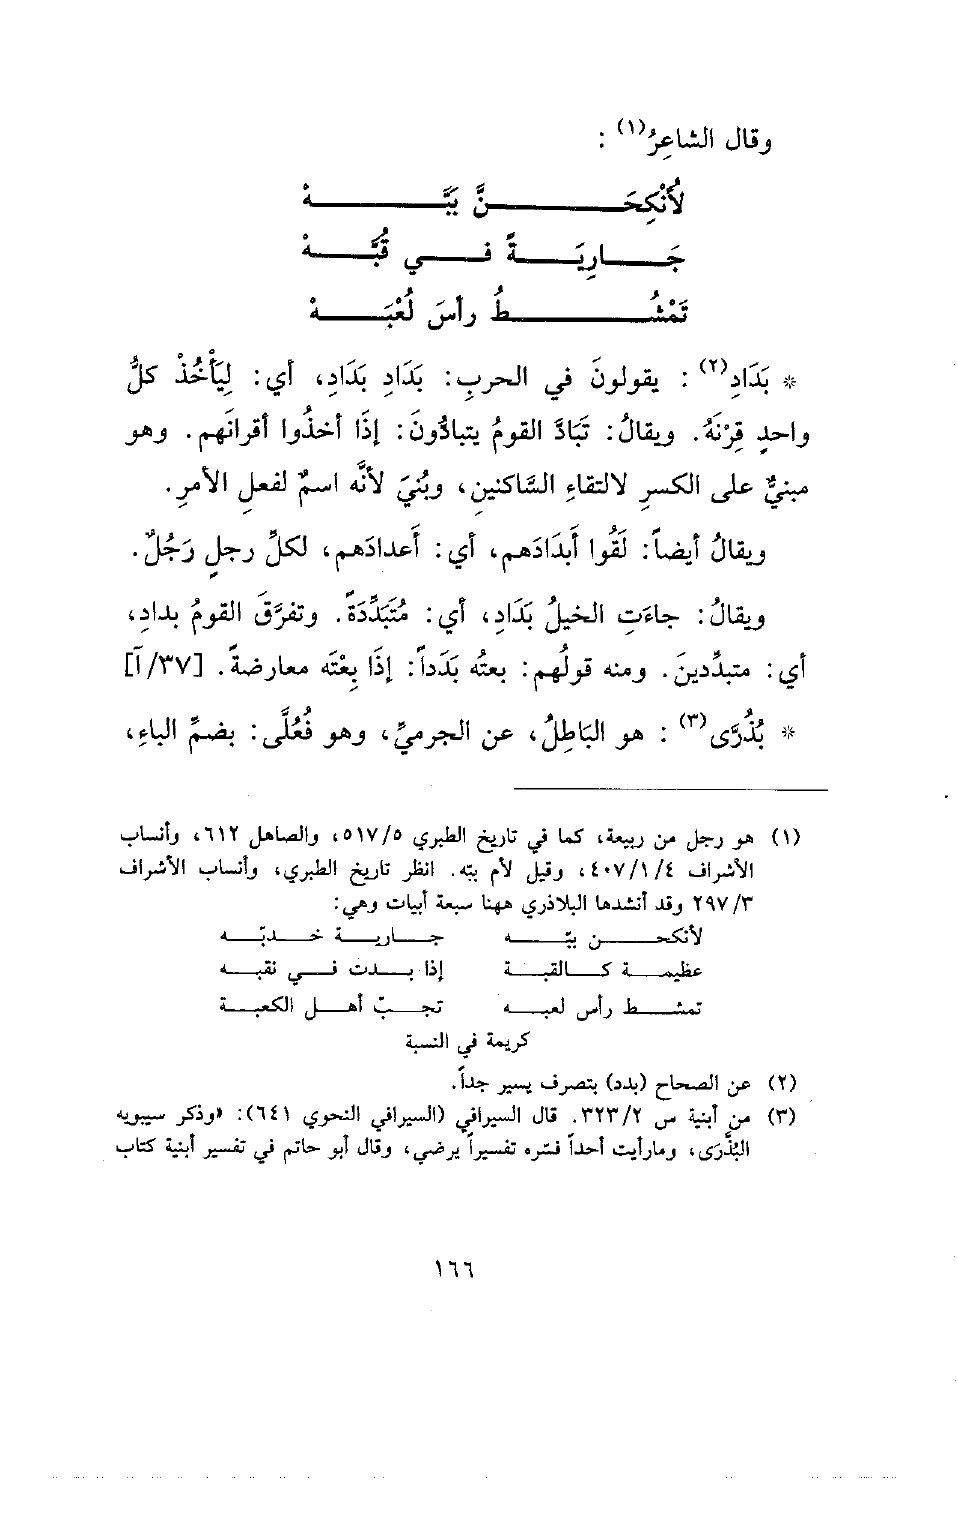 وقال الشاعِرُ(١) :
لأُنْكِحَـــنَّ بَبَّـــهْ
جَـــارِيَـــةً فـــي قُبَّـــهْ
تَمْشُـــطُ رأسَ لُعْبَـــهْ
* بَدَادِ(٢) : يقولونَ في الحربِ: بَدَادِ بَدَادِ، أي: لِيَأْخُذْ كلُّ
واحدٍ قِرْنَهُ. ويقالُ: تَبَادَّ القومُ يتبادُّونَ: إذَا أخذُوا أقرانَهم. وهو
مبنيٌّ على الكسرِ لالتقاءِ السَّاكنينِ، وبُنيَ لأنَّه اسمٌ لفعلِ الأمرِ.
ويقالُ أيضاً: لَقُوا أَبدَادَهم، أي: أَعدادَهم، لكلِّ رجلٍ رَجُلٌ.
ويقالُ: جاءَتِ الخيلُ بَدَادِ، أي: مُتَبَدِّدَةً. وتفرَّقَ القومُ بدادِ،
أي: متبدِّدينَ. ومنه قولُهم: بعتُه بَدَداً: إذَا بِعْتَه معارضةً. [٣٧/آ]
* بُذُرَّى(٣) : هو البَاطِلُ، عن الجرميِّ، وهو فُعُلَّى: بضمِّ الباءِ،
(١) هو رجل من ربيعة، كما في تاريخ الطبري ٥١٧/٥، والصاهل ٦١٢، وأنساب
الأشراف ٤٠٧/١/٤، وقيل لأم ببّه. انظر تاريخ الطبري، وأنساب الأشراف
٢٩٧/٣ وقد أنشدها البلاذري ههنا سبعة أبيات وهي:
لأنكحـــن ببّـــه جـــاريـــة خـــدبّـــه
عظيمـــة كـــالقبـــة إذا بـــدت فـــي نقبـــه
تمشـــط رأس لعبـــه تجـــبّ أهـــل الكعبـــة
كريمة في النسبة
(٢) عن الصحاح (بدد) بتصرف يسير جداً.
(٣) من أبنية س ٣٢٣/٢. قال السيرافي (السيرافي النحوي ٦٤١): «وذكر سيبويه
البُذُرَّى، ومارأيت أحداً فسّره تفسيراً يرضي، وقال أبو حاتم في تفسير أبنية كتاب
١٦٦